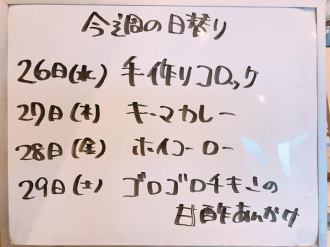 今週の日替り
26日(水) 手作りコロッケ
27日(木) キーマカレー
28日(金) ホイコーロー
29日(土) ゴロゴロチキンの
甘酢あんかけ